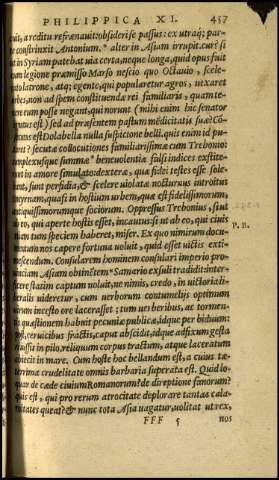 PHILIPPICA XI. 457
cuit, areditu refrænauit: obsideri se passus: ex utraq; par-
te constrinxit Antonium. * alter in Asiam irrupit. cur? si
ut in Syriam: patebat uia certa, neque longa. quid opus fuit
cum legione præmisso Marso nescio quo Octauio, scele-
rato latrone, atq; egenti, qui popularetur agros, uexaret
urbes, non ad spem constituendæ rei familiaris, quam te-
nere eum posse negant, qui norunt (mihi enim hic senator
ignotus est) sed ad præsentem pastum mēdicitatis suæ? Cō-
secutus est Dolabella nulla suspicione belli. quis enim id pu-
taret? secutæ collocutiones familiarissimæ cum Trebonio:
complexusque summæ beneuolentiæ falsi indices extite-
runt in amore simulato: dexteræ, quæ fidei testes esse sole-
bant, sunt perfidia, & scelere uiolatæ: nocturnus introitus
Smyrnam, quasi in hostium urbem, quæ est fidelissimorum,
antiquissimorumque sociorum. Oppressus Trebonius, si ut
ab eo, qui aperte hostis esset, incautus: si ut ab eo, qui ciuis
etiam tum speciem haberet, miser. Ex quo nimirum docu-
mentum nos capere fortuna uoluit, quid esset uictis exti-
mescendum. Consularem hominem consulari imperio pro-
uinciam Asiam obtinētem Samario exsuli tradidit: inter-
ficere statim captum noluit, ne nimis, credo, in uictoria li-
beralis uideretur. cum uerborum contumelijs optimum
uirum incesto ore lacerasset; tum uerberibus, ac tormen-
tis quæstionem habuit pecuniæ publicæ, idque per biduum:
post, ceruicibus fractis, caput abscidit, idque adfixum gesta-
ri iussit in pilo. reliquum corpus tractum, atque laceratum
abiecit in mare. Cum hoc hoste bellandum est, a cuius tæ-
terrima crudelitate omnis barbaria superata est. Quid lo-
quar de cæde ciuium Romanorum? de direptione fanorum?
quis est, qui pro rerum atrocitate deplorare tantas cala-
mitates queat? & nunc tota Asia uagatur, uolitat ut rex,
P. II.
FFF 5 nos